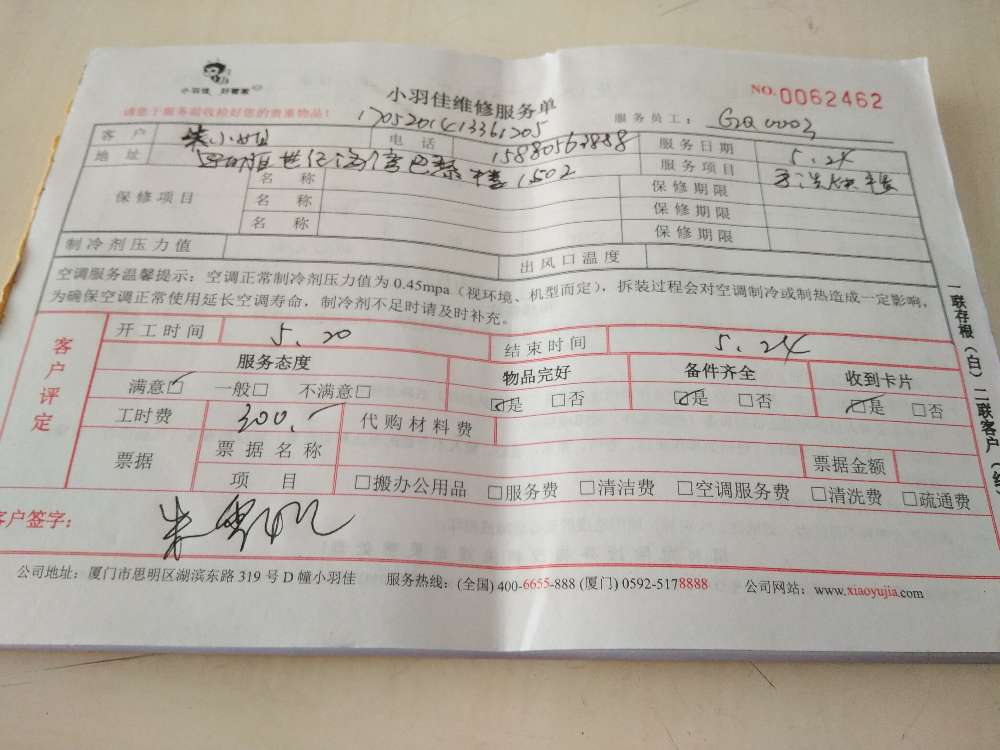 小羽佳 好管家
小羽佳维修服务单
NO.0062462
请您于服务前收检好您的贵重物品!
1705201413361205
服务员工:
客户 朱小姐 电话 15880563888 服务日期 5.24
地址 世纪海湾巴黎楼1502 服务项目
保修项目 名称 保修期限
名称 保修期限
名称 保修期限
制冷剂压力值 出风口温度
空调服务温馨提示:空调正常制冷剂压力值为0.45mpa(视环境、机型而定),拆装过程会对空调制冷或制热造成一定影响。
为确保空调正常使用延长空调寿命,制冷剂不足时请及时补充。
客户评定
开工时间 5.20 结束时间 5.24
服务态度 物品完好 备件齐全 收到卡片
满意☑ 一般□ 不满意□ ☑是 □否 ☑是 □否 ☑是 □否
工时费 300.- 代购材料费
票据 票据名称 票据金额
项目 □搬办公用品 □服务费 □清洁费 □空调服务费 □清洗费 □疏通费
客户签字:
公司地址:厦门市思明区湖滨东路319号D幢小羽佳 服务热线:(全国)400-6655-888(厦门)0592-5178888 公司网站:www.xiaoyujia.com
一联存根(白)二联客户(红